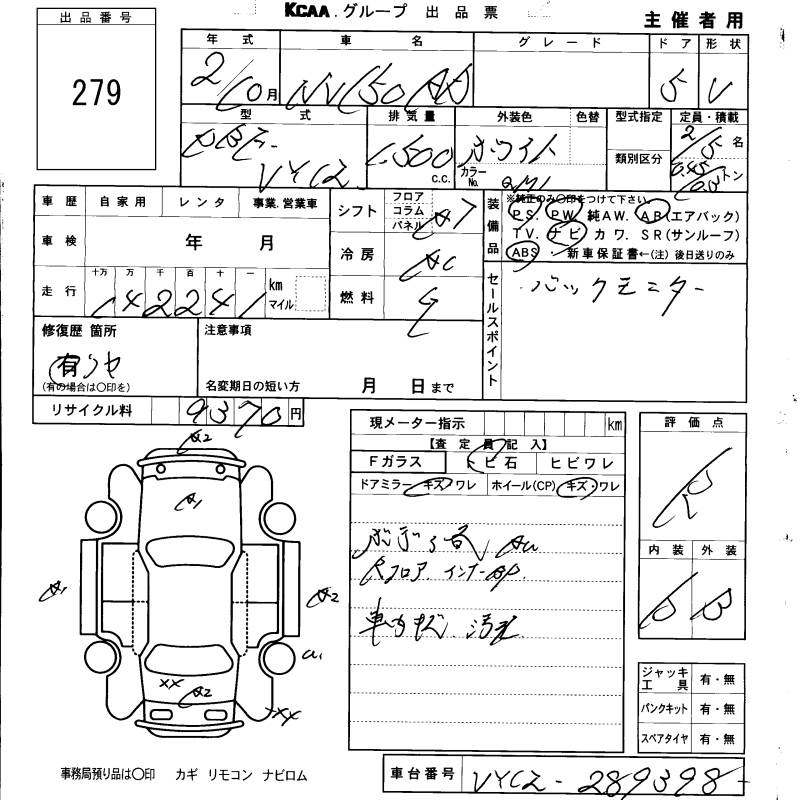 KCAA グループ 出品票
主催者用
出品番号
279
年式 車名 グレード ドア 形状
2/10月 NV150 AD 5 V
型式 排気量 外装色 色替 型式指定 定員・積載
DBF-VYC12 1,500 c.c. ホワイト カラーNo. QM1 類別区分 2/5名
トン
車歴 自家用 レンタ 事業.営業車
シフト フロア コラム パネル AT
装備品 ※純正のみ○印をつけて下さい。
PS. PW 純AW. AB(エアバック)
TV. ナビ カワ. SR(サンルーフ)
ABS 新車保証書←(注)後日送りのみ
車検 年 月
冷房 AC
走行 十万 万 千 百 十 一 km マイル
142241
燃料 G
セールスポイント バックモニター
修復歴 箇所 注意事項
有
(有の場合は○印を)
名変期日の短い方 月 日まで
リサイクル料 9370円
現メーター指示 km
【査定員記入】
Fガラス トビ石 ヒビワレ
ドアミラー キズ・ワレ ホイール(CP) キズ・ワレ
評価点
R
内装 外装
D B
A2
A1
A1
A2
a1
XX A2
XX
Rフロア インナーAP.
車内 汚れ
ジャッキ工具 有・無
パンクキット 有・無
スペアタイヤ 有・無
事務局預り品は○印 カギ リモコン ナビロム
車台番号 VYC12-289398